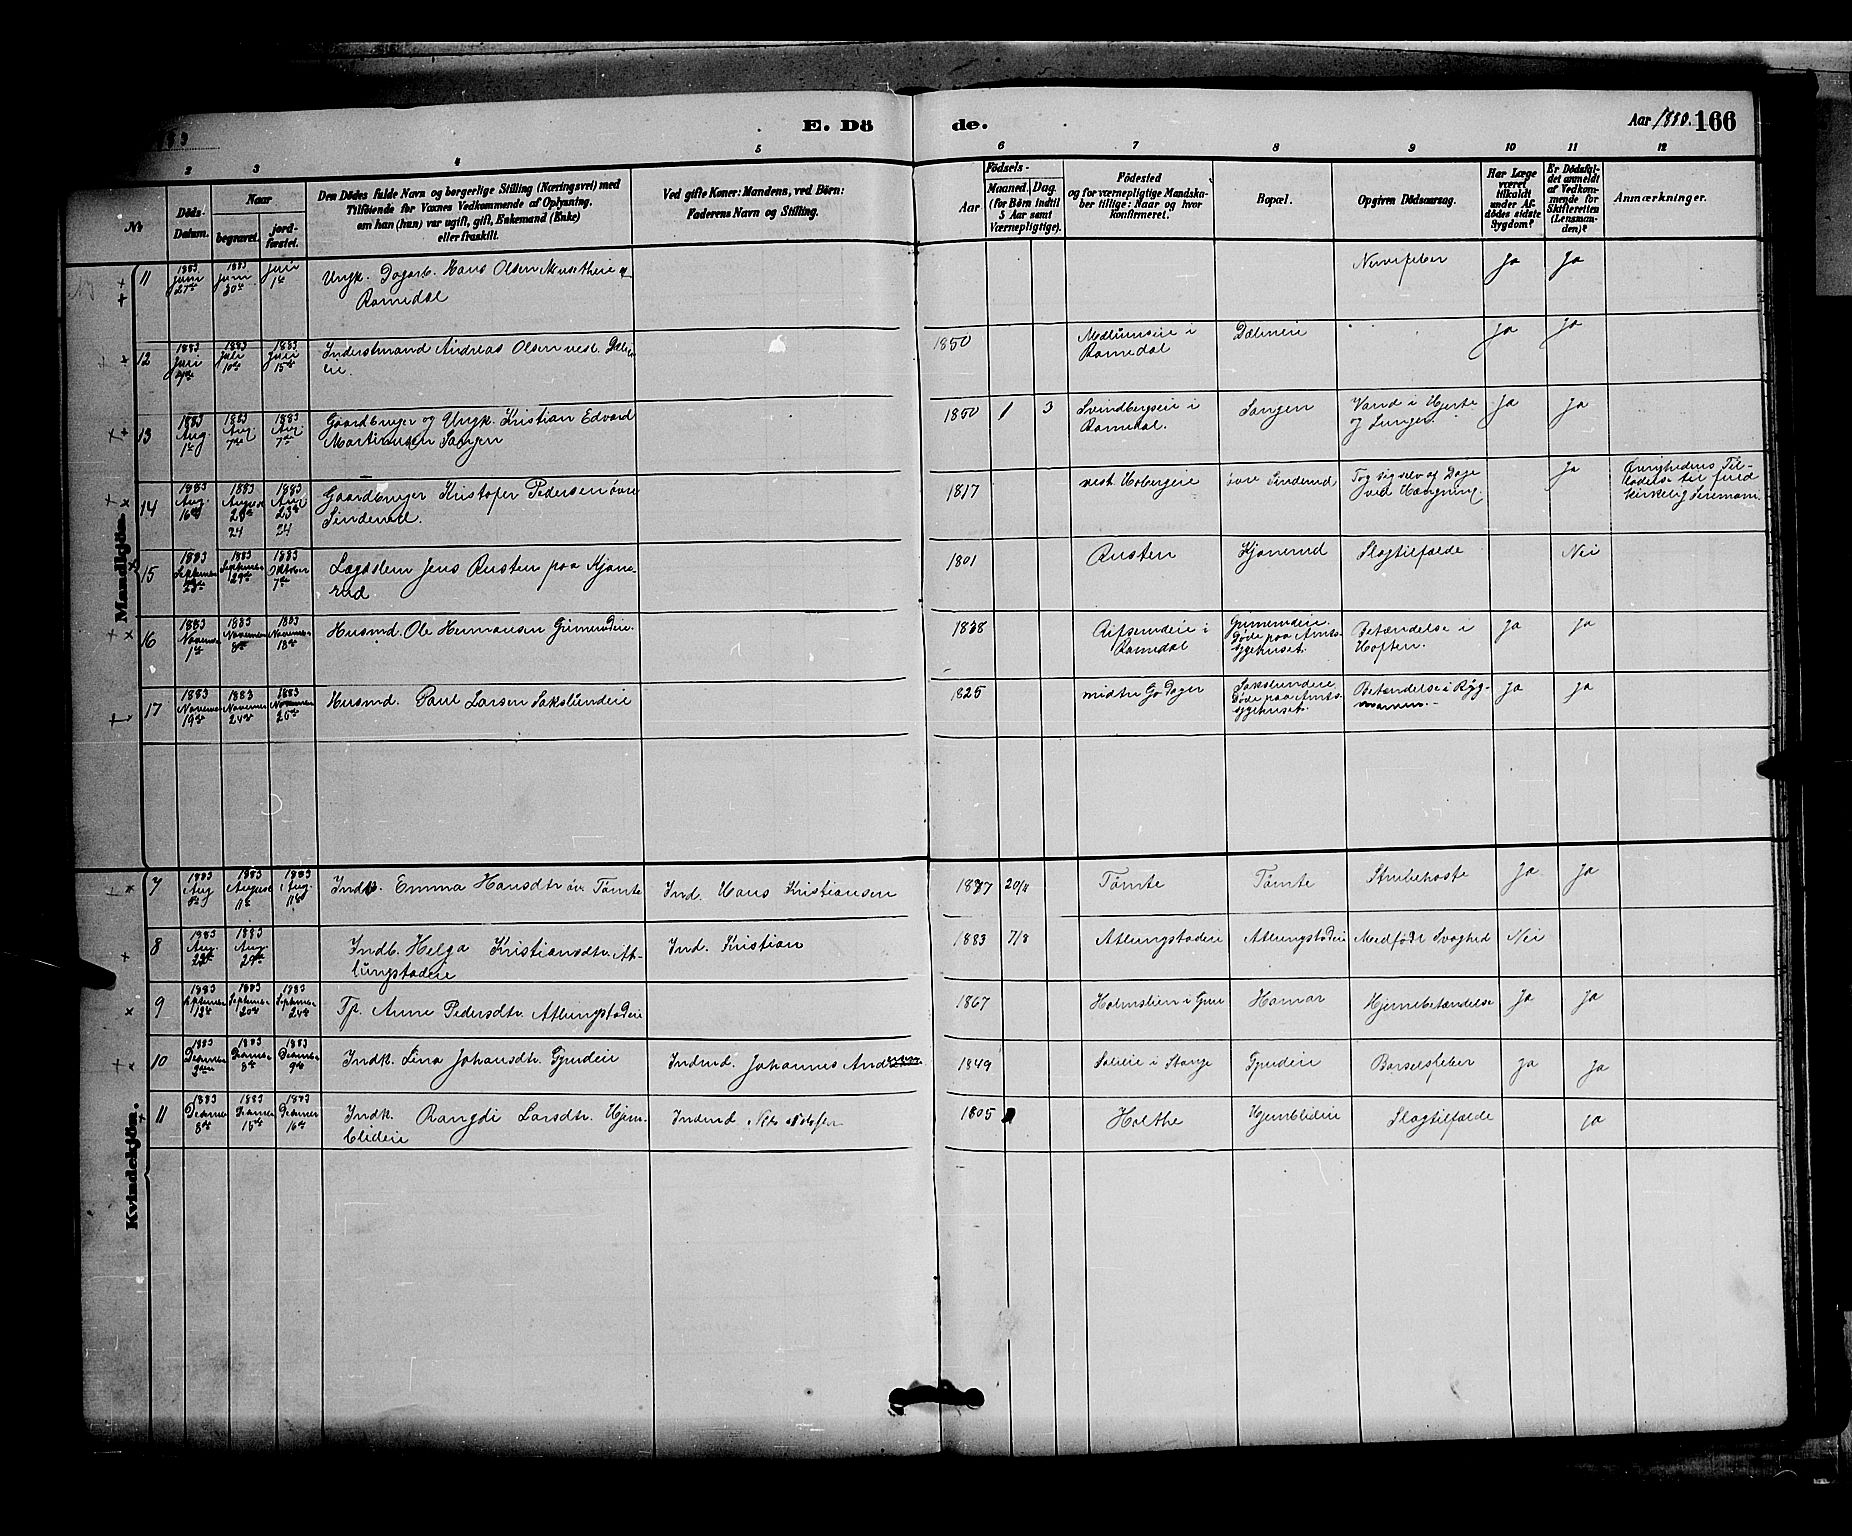 E. Dö de.
Aar 1880. 166
2 3 4 5 6 7 8 9 10 11 12
No
Döds-Datum.
Naar
begravet.
jord-fæstet.
Den Dödes fulde Navn og borgerlige Stilling (Næringsvei) med
Tilföiende for Voxnes Vedkommende af Oplysning,
om han (hun) var ugift, gift, Enkemand (Enke)
eller fraskilt.
Ved gifte Koner: Mandens, ved Börn:
Faderens Navn og Stilling.
Födsels-
Aar
Maaned. Dag.
(for Börn indtil
5 Aar samt
Værnepligtige).
Födested
og for værnepligtige Mandska-
ber tillige: Naar og hvor
konfirmeret.
Bopæl.
Opgiven Dödsaarsag.
Har Læge
været
tilkaldt
under Af-
dödes sidste
Sygdom?
Er Dödsfal-
det anmeldt
af Vedkom-
mende for
Skifteretten
(Lensman-
den)?
Anmærkninger.
Mandkjön.
11 1883 Juni 27de 1883 Juni 30te Juli 1te Ungk. Dagarb. Hans Olsen
Romedal
Nervefeber Ja Ja
12 1883 Juli 1883 Juli 10de 1883 Juli 15de Inderstmand Andreas Olsen vest. Dælen-
eie.
1850 Mælumseie i
Romedal Dæleneie Ja Ja
13 1883 Aug. 1te 1883 Aug 7de 1883 Aug 7de Gaardbruger og Ungk. Kristian Edvard
Martinusen Sangen
1850 1 3 Svindbergseie i
Romedal. Sangen Vand i Hjerte
og Lunger. Ja Ja
14 1883 Aug. 16de 1883 August 24 1883 Aug 23de 24 Gaardbruger Kristofer Pedersen övre
Linderud.
1817 vest. Hobergeie övre Linderud Tog sig selv af Dage
ved Hængning. Ja Övrighedens Til-
ladelse til fuld
kirkelig Seremoni.
15 1883 September 23de 1883 September 29de 1883 Oktober 7de Lægdslem Jens Austen paa Kjone-
rud
1801 Austen Kjonerud Slagtilfælde Nei
16 1883 November 1te 1883 November 8de 1883 November 18de Husmd. Ole Hermansen Grimerudeie.
1838 Rifserudeie i
Romedal Grimerudeie
Döde paa Amts-
sygehuset. Betændelse i
Hoften. Ja Ja
17 1883 November 19de 1883 November 24de 1883 November 25de Husmd. Paul Larsen Sakslundeie
1825 midtre Sakslundeie
Döde paa Amts-
sygehuset. Betændelse i Ryg-
marven. Ja Ja
Kvindekjön.
7 1883 Aug 1883 August 11te 1883 Aug. Indb. Emma Hansdtr. övr. Tömte Ind. Hans Kristiansen
1877 20/8 Tömte Tömte Strubehoste Ja Ja
8 1883 Aug. 22de 1883 Aug. Indb. Helga Kristiansdtr. At-
lungstadeie Ind. Kristian
1883 7/8 Atlungstadeie Atlungstadeie Medfödt Svaghed Nei
9 1883 September 13de 1883 September 20de 1883 September 24de Tp. Anne Pedersdtr. Atlungstadeie
1867 Holmslien i Hamar Hjernebetændelse Ja Ja
10 1883 December 1883 December 8de 1883 December 9de Indk. Lina Johansdtr. Gjrudeie Indmd. Johannes
1849 i Stange Gjrudeie Barselfeber Ja Ja
11 1883 December 8de 1883 December 15de 1883 December 16de Indk. Rangdi Larsdtr. Hjem-
blideie Indmd. Nils
1805 Holthe Hjemblideie Slagtilfælde Ja